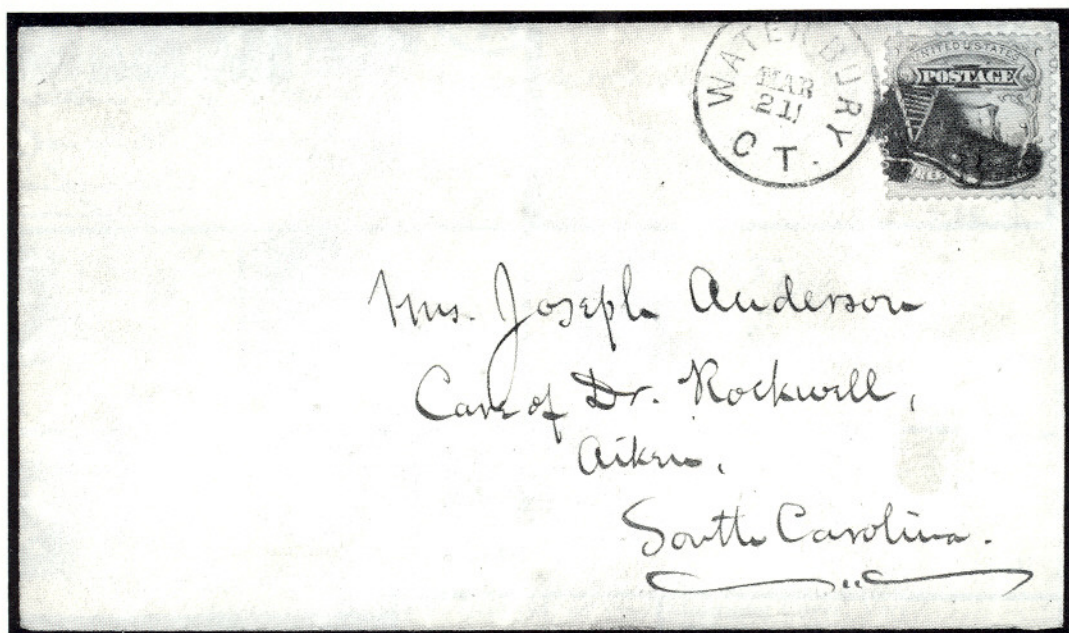 WATERBURY
MAR
21
CT.
UNITED STATES
POSTAGE
Mrs. Joseph Anderson
Care of Dr. Rockwell,
Aiken,
South Carolina.